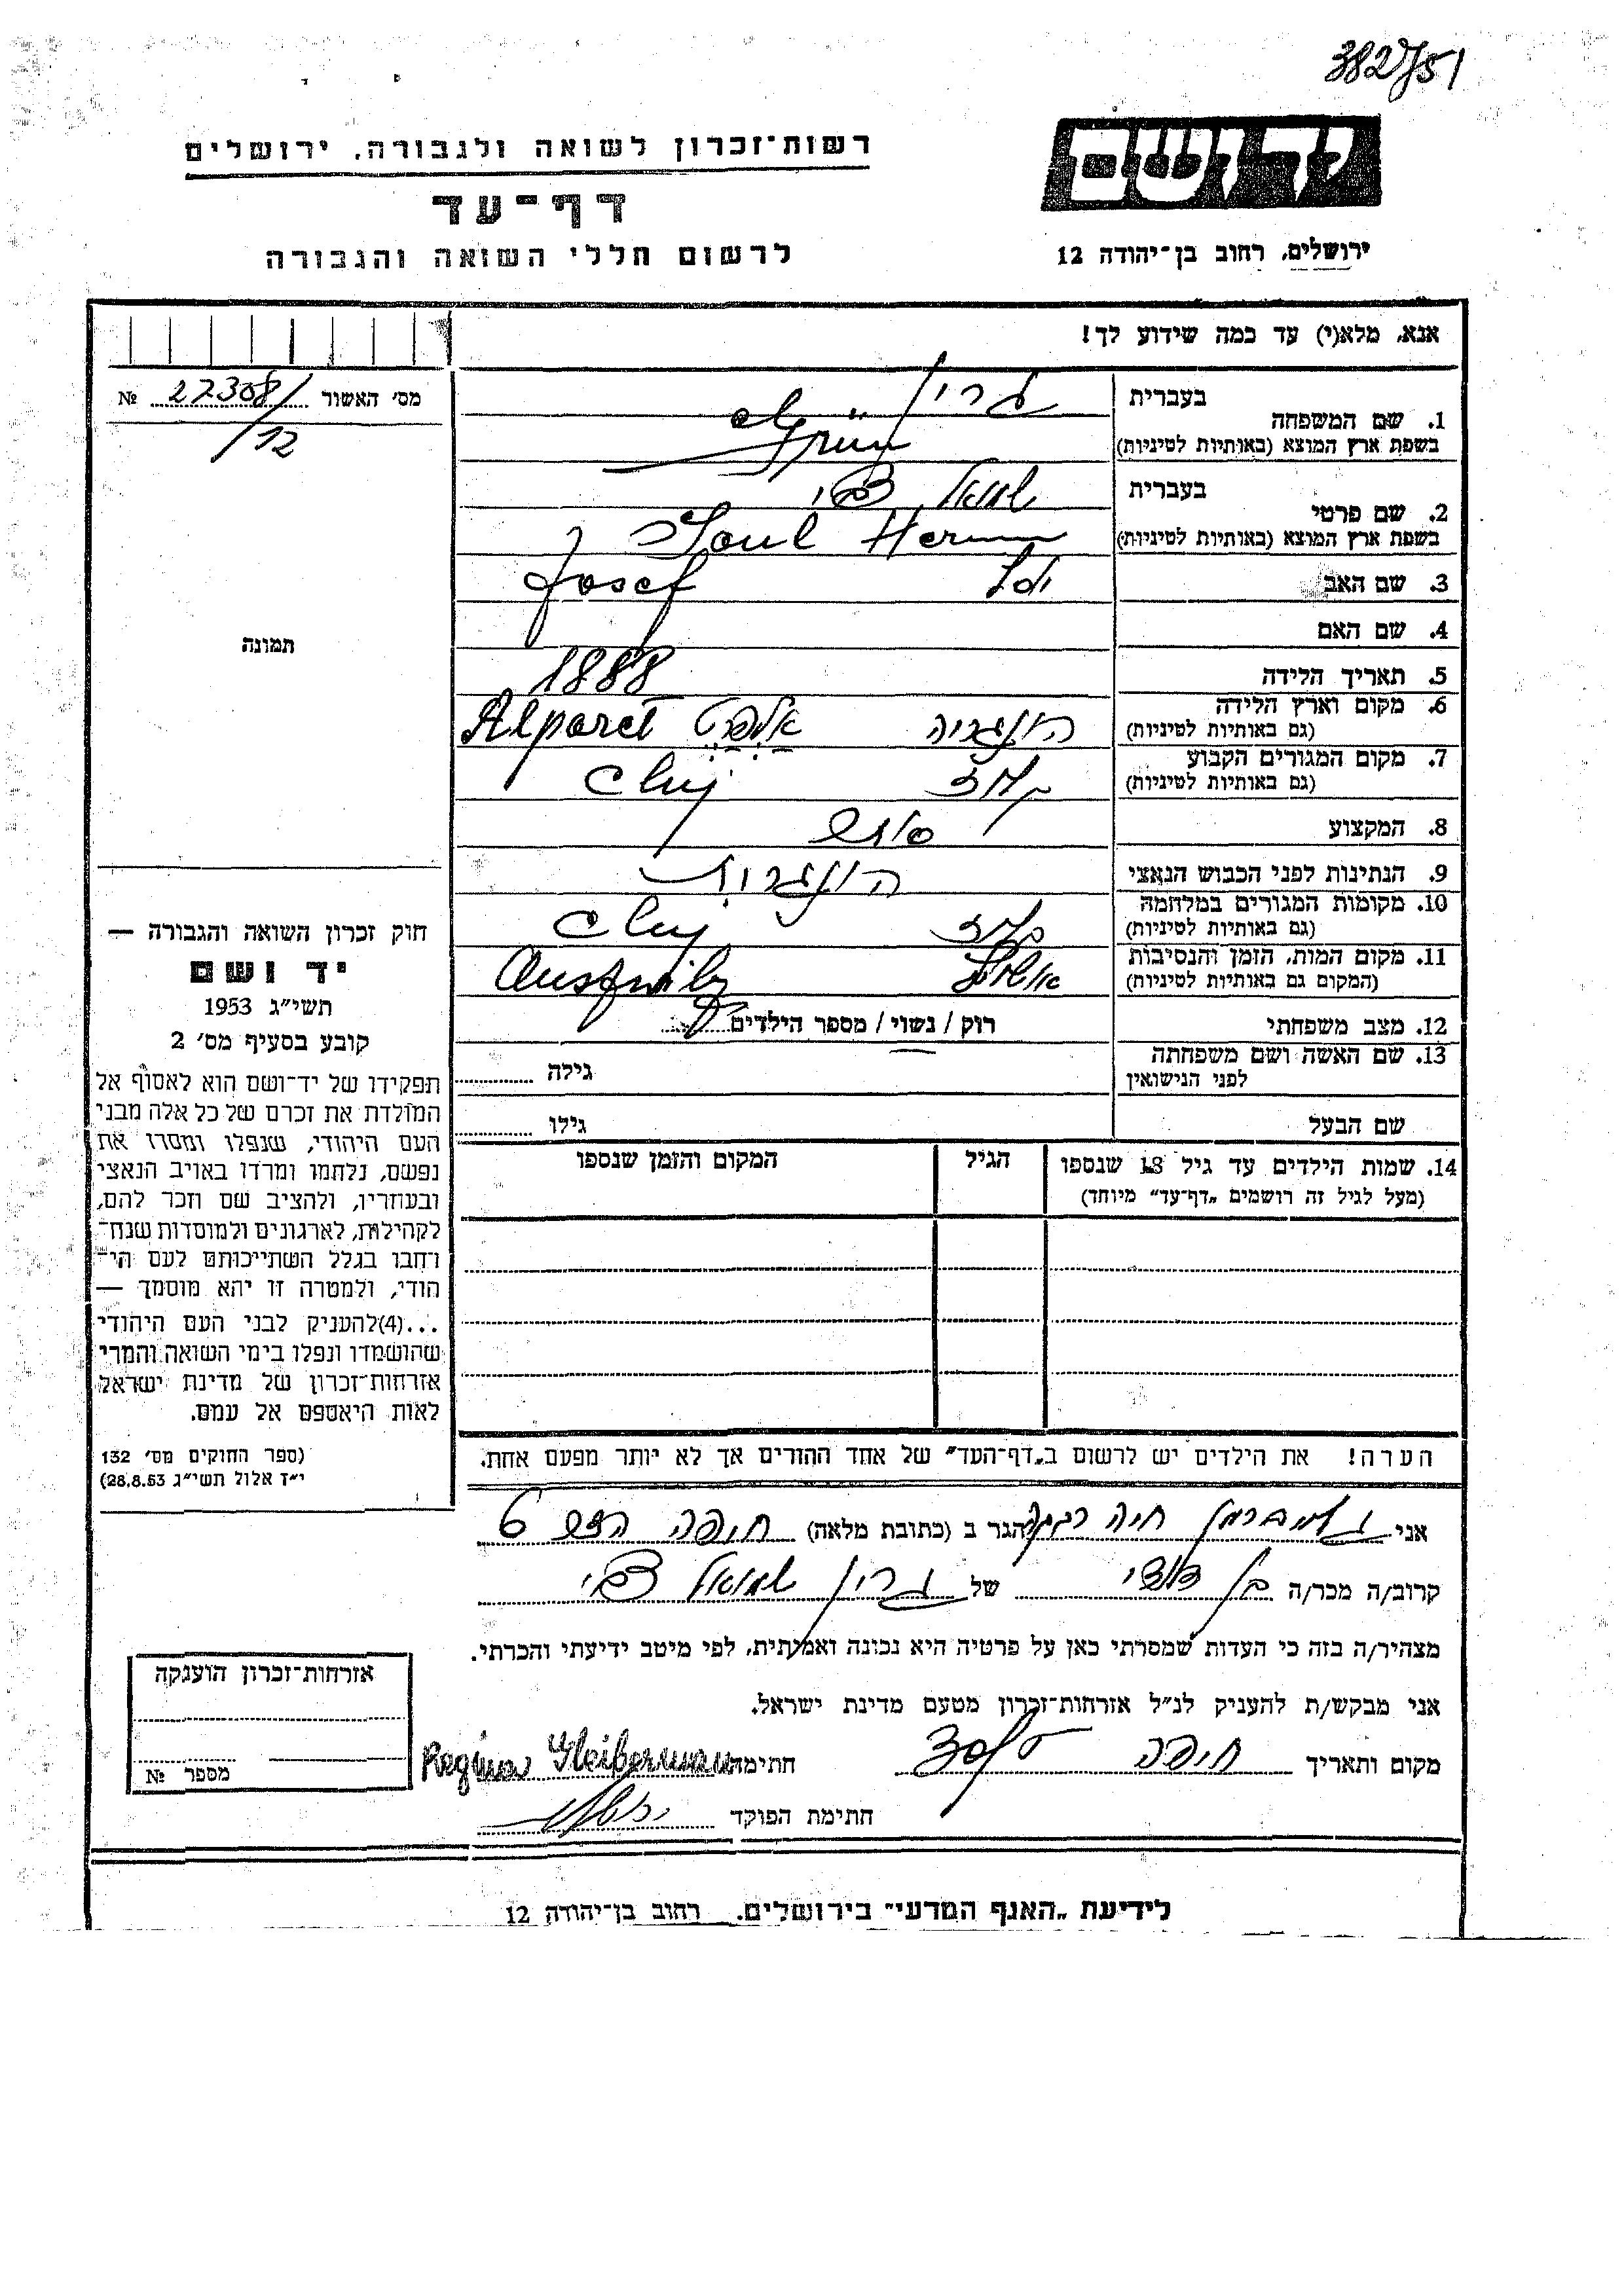 382/51
רשות־זכרון לשואה ולגבורה, ירושלים
יד ושם
דף־עד
לרשום חללי השואה והגבורה
ירושלים, רחוב בן־יהודה 12
אנא, מלא(י) עד כמה שידוע לך!
מס׳ האשור 27308/ №
12
1. שם המשפחה בעברית גרין
בשפת ארץ המוצא (באותיות לטיניות) Grün
2. שם פרטי בעברית שמואל צבי
בשפת ארץ המוצא (באותיות לטיניות) Herman
3. שם האב Josef
4. שם האם
5. תאריך הלידה 1888
6. מקום וארץ הלידה הונגריה אלפרט Alparet
(גם באותיות לטיניות)
7. מקום המגורים הקבוע קלוז Cluj
(גם באותיות לטיניות)
8. המקצוע סוחר
9. הנתינות לפני הכבוש הנאצי הונגרית
10. מקומות המגורים במלחמה קלוז Cluj
(גם באותיות לטיניות)
11. מקום המות, הזמן והנסיבות
(המקום גם באותיות לטיניות)
12. מצב משפחתי רוק / נשוי / מספר הילדים
13. שם האשה ושם משפחתה גילה
לפני הנישואין
שם הבעל גילו
14. שמות הילדים עד גיל 18 שנספו הגיל המקום והזמן שנספו
(מעל לגיל זה רושמים „דף־עד״ מיוחד)
הערה! את הילדים יש לרשום ב„דף־העד״ של אחד ההורים אך לא יותר מפעם אחת.
תמונה
חוק זכרון השואה והגבורה —
יד ושם
תשי״ג 1953
קובע בסעיף מס׳ 2
תפקידו של יד־ושם הוא לאסוף אל
המולדת את זכרם של כל אלה מבני
העם היהודי, שנפלו ומסרו את
נפשם, נלחמו ומרדו באויב הנאצי
ובעוזריו, ולהציב שם וזכר להם,
לקהילות, לארגונים ולמוסדות שנח־
רחבו בגלל השתייכותם לעם הי־
הודי, ולמטרה זו יהא מוסמך —
...(4)להעניק לבני העם היהודי
שהושמדו ונפלו בימי השואה והמרי
אזרחות־זכרון של מדינת ישראל
לאות היאספם אל עמם.
(ספר החוקים מס׳ 132
י״ז אלול תשי״ג 28.8.53)
אני גלייברמן חיה רבקה הגר ב (כתובת מלאה) חיפה 6
קרוב/ה מכר/ה בן דודי של גרין שמואל צבי
מצהיר/ה בזה כי העדות שמסרתי כאן על פרטיה היא נכונה ואמיתית, לפי מיטב ידיעתי והכרתי.
אני מבקש/ת להעניק לנ״ל אזרחות־זכרון מטעם מדינת ישראל.
מקום ותאריך חיפה חתימה Regina Gleiberman
חתימת הפוקד
אזרחות־זכרון הוענקה
מספר №
לידיעת „האגף המדעי״ בירושלים, רחוב בן־יהודה 12